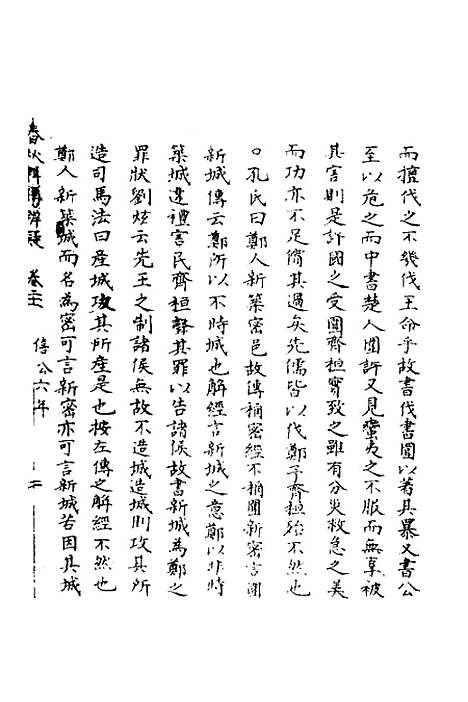 而擅伐之不幾伐王命乎故書伐書圍以著其暴又書公
至以危之而中書楚人圍許又見蠻夷之不服而無辜被
其害則是許國之受圍齊桓實致之雖有分災救急之美
而功亦不足償其過矣先儒皆以伐鄭予齊桓殆不然也
○孔氏曰鄭人新築密邑故傳稱密經不稱圍新密言圍
新城傳云鄭所以不時城也解經言新城之意鄭以非時
築城違禮害民齊桓聲其罪以告諸侯故書新城為鄭之
罪狀劉炫云先王之制諸侯無故不造城造城則攻其所
造司馬法曰産城攻其所産是也按左傳之解經不然也
鄭人新築城而名為密可言新密亦可言新城若因其城
春秋輯傳辨疑 卷三 僖公六年 二